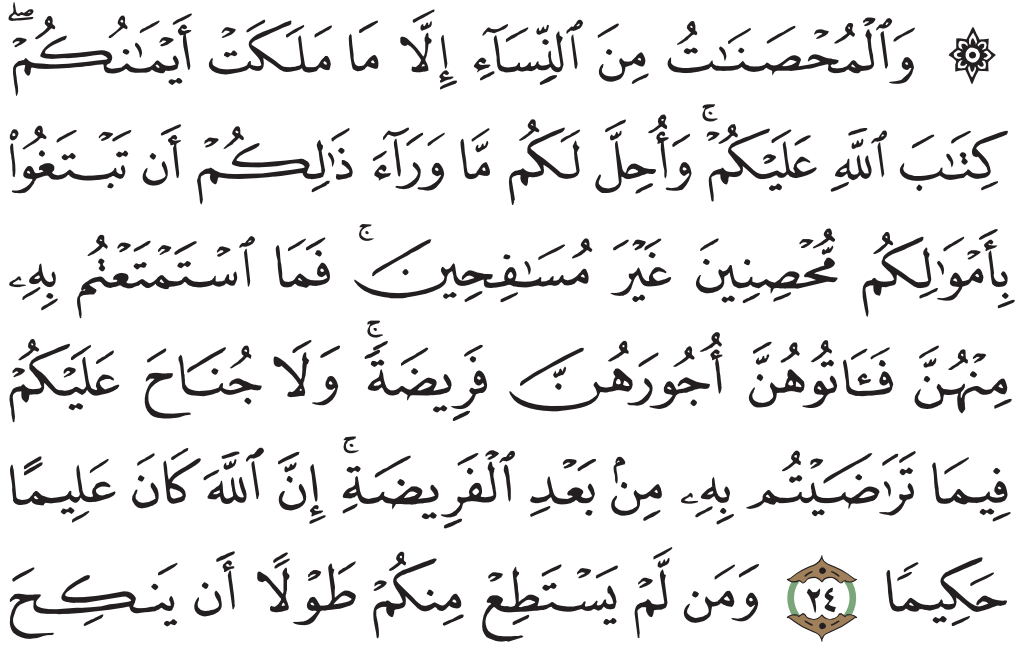 ۞ وَٱلْمُحْصَنَـٰتُ مِنَ ٱلنِّسَآءِ إِلَّا مَا مَلَكَتْ أَيْمَـٰنُكُمْ ۖ
كِتَـٰبَ ٱللَّهِ عَلَيْكُمْ ۚ وَأُحِلَّ لَكُم مَّا وَرَآءَ ذَٰلِكُمْ أَن تَبْتَغُوا۟
بِأَمْوَٰلِكُم مُّحْصِنِينَ غَيْرَ مُسَـٰفِحِينَ ۚ فَمَا ٱسْتَمْتَعْتُم بِهِۦ
مِنْهُنَّ فَـَٔاتُوهُنَّ أُجُورَهُنَّ فَرِيضَةً ۚ وَلَا جُنَاحَ عَلَيْكُمْ
فِيمَا تَرَٰضَيْتُم بِهِۦ مِنۢ بَعْدِ ٱلْفَرِيضَةِ ۚ إِنَّ ٱللَّهَ كَانَ عَلِيمًا
حَكِيمًا ٢٤ وَمَن لَّمْ يَسْتَطِعْ مِنكُمْ طَوْلًا أَن يَنكِحَ